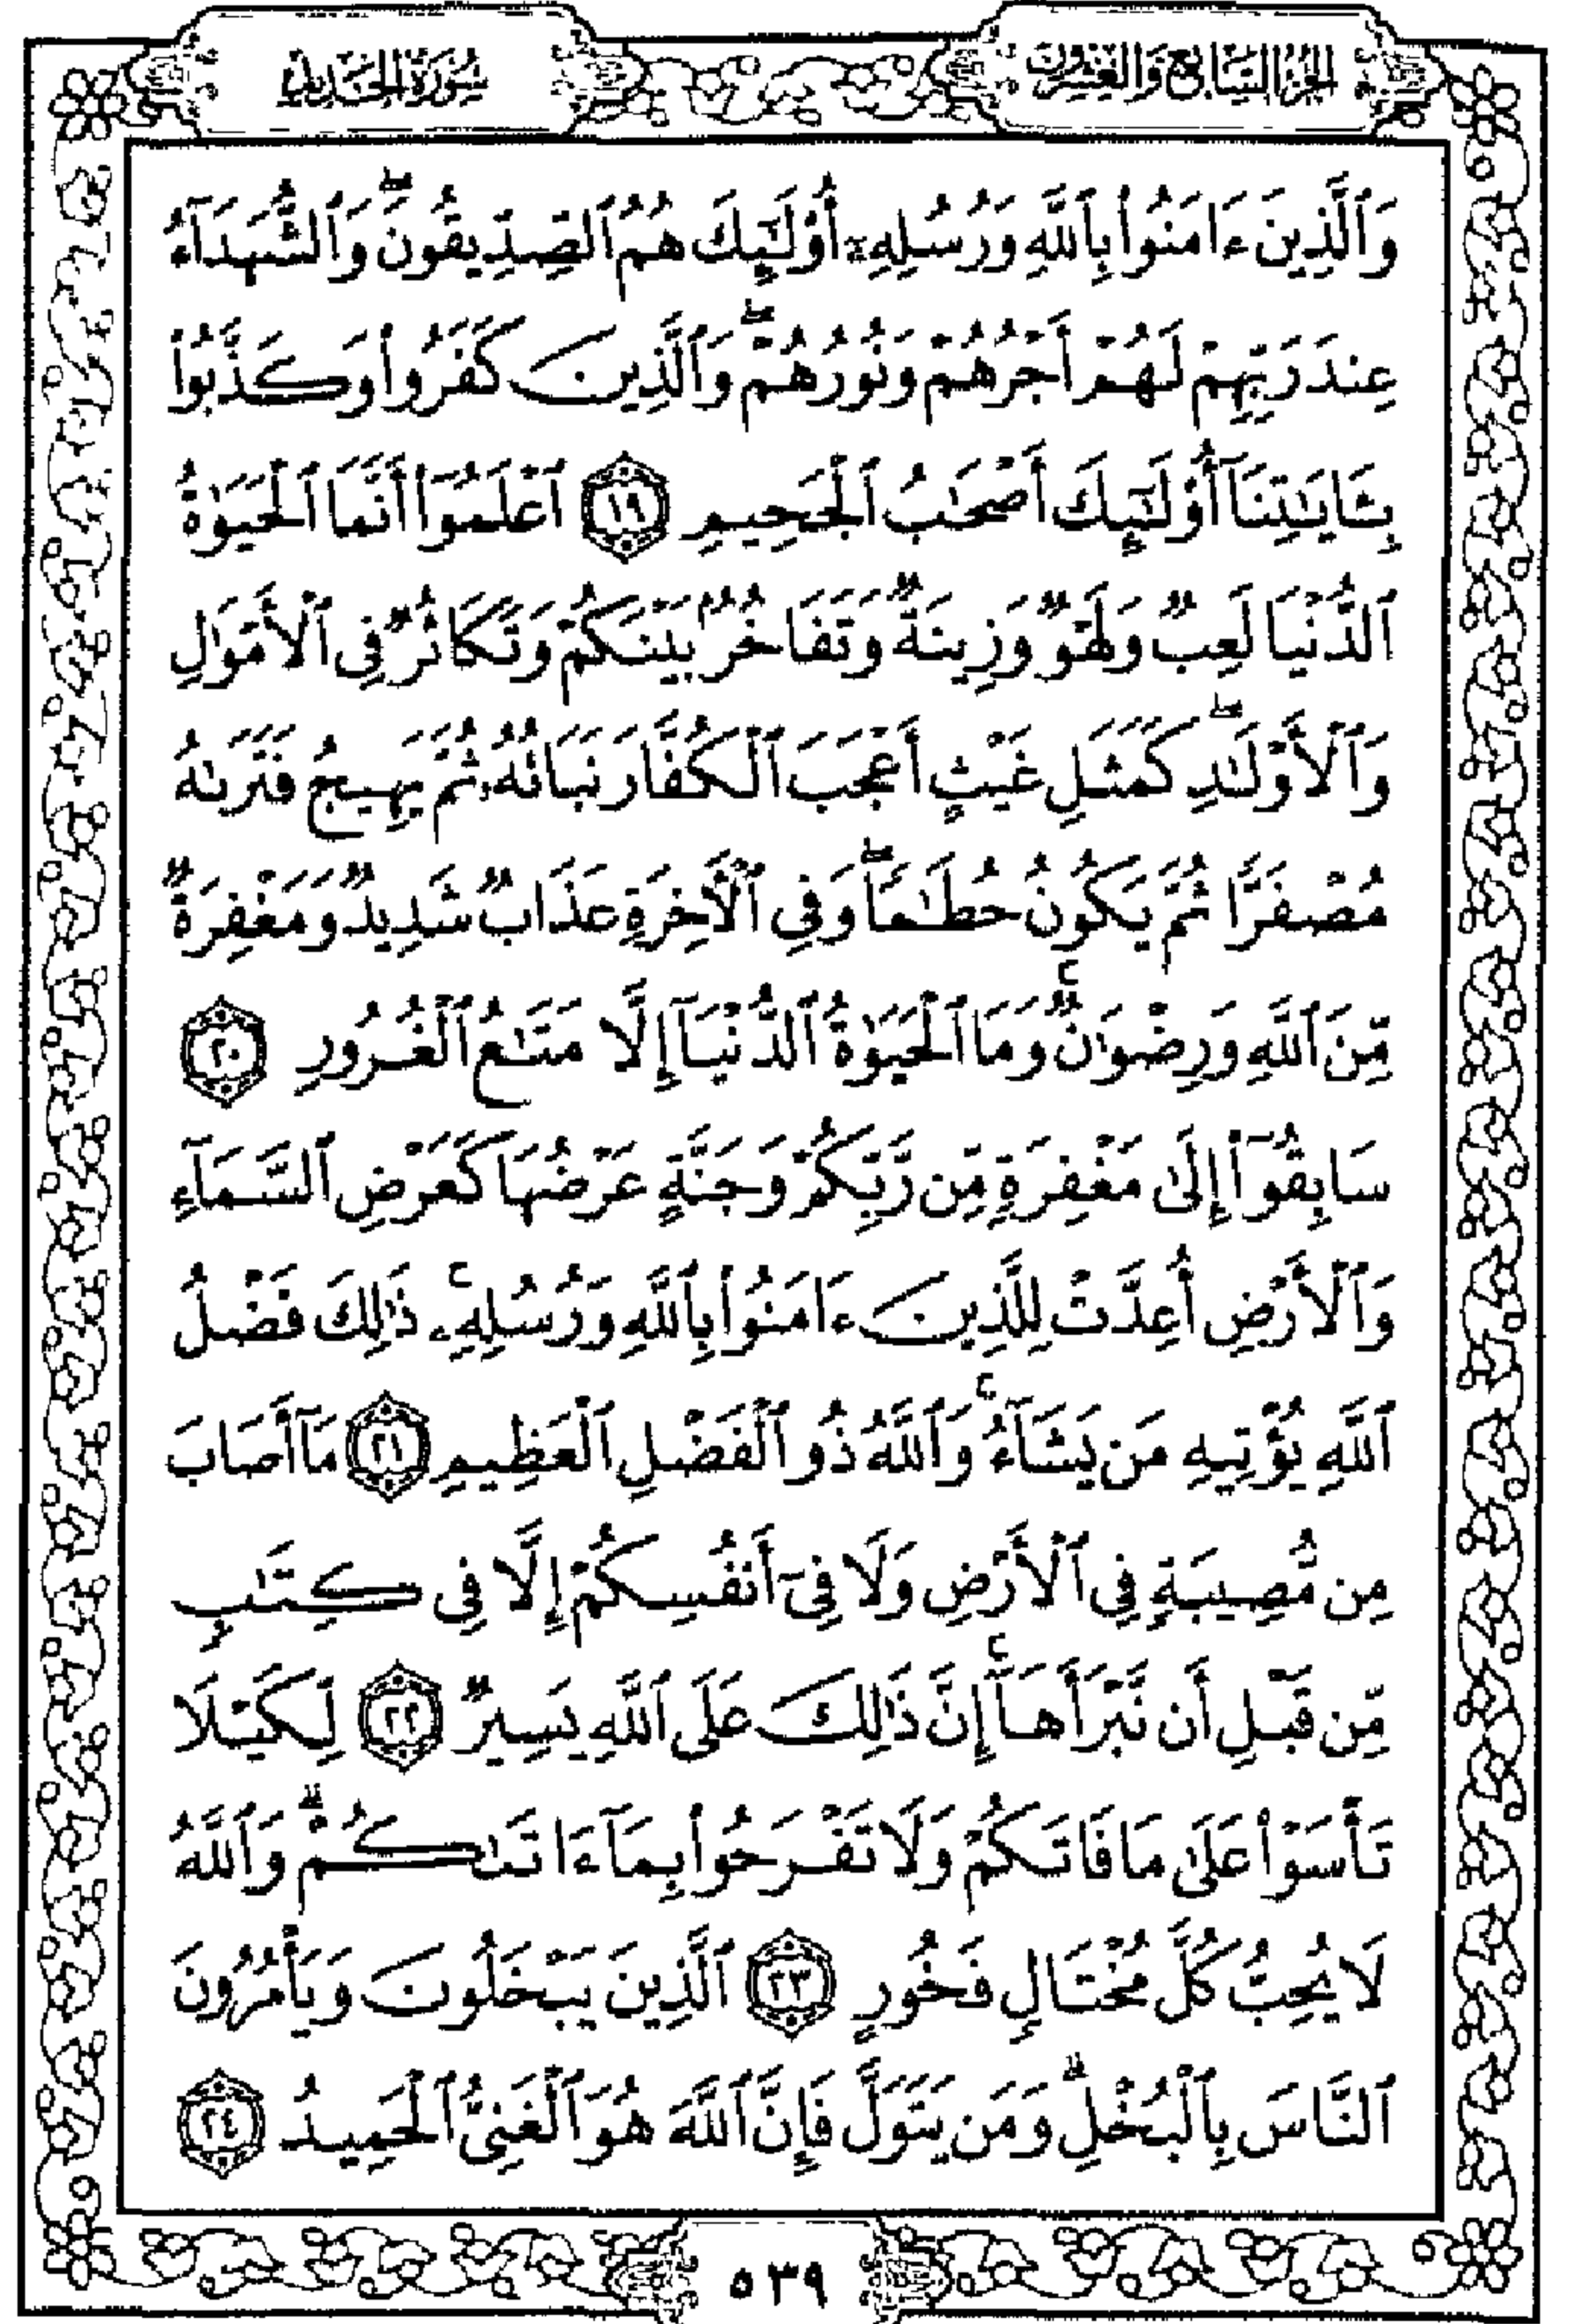 الجزء السابع والعشرون
سورة الحديد
وَٱلَّذِينَ ءَامَنُوا۟ بِٱللَّهِ وَرُسُلِهِۦٓ أُو۟لَـٰٓئِكَ هُمُ ٱلصِّدِّيقُونَ ۖ وَٱلشُّهَدَآءُ
عِندَ رَبِّهِمْ لَهُمْ أَجْرُهُمْ وَنُورُهُمْ ۖ وَٱلَّذِينَ كَفَرُوا۟ وَكَذَّبُوا۟
بِـَٔايَـٰتِنَآ أُو۟لَـٰٓئِكَ أَصْحَـٰبُ ٱلْجَحِيمِ ١٩ ٱعْلَمُوٓا۟ أَنَّمَا ٱلْحَيَوٰةُ
ٱلدُّنْيَا لَعِبٌ وَلَهْوٌ وَزِينَةٌ وَتَفَاخُرٌۢ بَيْنَكُمْ وَتَكَاثُرٌ فِى ٱلْأَمْوَٰلِ
وَٱلْأَوْلَـٰدِ ۖ كَمَثَلِ غَيْثٍ أَعْجَبَ ٱلْكُفَّارَ نَبَاتُهُۥ ثُمَّ يَهِيجُ فَتَرَىٰهُ
مُصْفَرًّا ثُمَّ يَكُونُ حُطَـٰمًا ۖ وَفِى ٱلْـَٔاخِرَةِ عَذَابٌ شَدِيدٌ وَمَغْفِرَةٌ
مِّنَ ٱللَّهِ وَرِضْوَٰنٌ ۚ وَمَا ٱلْحَيَوٰةُ ٱلدُّنْيَآ إِلَّا مَتَـٰعُ ٱلْغُرُورِ ٢٠
سَابِقُوٓا۟ إِلَىٰ مَغْفِرَةٍ مِّن رَّبِّكُمْ وَجَنَّةٍ عَرْضُهَا كَعَرْضِ ٱلسَّمَآءِ
وَٱلْأَرْضِ أُعِدَّتْ لِلَّذِينَ ءَامَنُوا۟ بِٱللَّهِ وَرُسُلِهِۦ ۚ ذَٰلِكَ فَضْلُ
ٱللَّهِ يُؤْتِيهِ مَن يَشَآءُ ۚ وَٱللَّهُ ذُو ٱلْفَضْلِ ٱلْعَظِيمِ ٢١ مَآ أَصَابَ
مِن مُّصِيبَةٍ فِى ٱلْأَرْضِ وَلَا فِىٓ أَنفُسِكُمْ إِلَّا فِى كِتَـٰبٍ
مِّن قَبْلِ أَن نَّبْرَأَهَآ ۚ إِنَّ ذَٰلِكَ عَلَى ٱللَّهِ يَسِيرٌ ٢٢ لِّكَيْلَا
تَأْسَوْا۟ عَلَىٰ مَا فَاتَكُمْ وَلَا تَفْرَحُوا۟ بِمَآ ءَاتَىٰكُمْ ۗ وَٱللَّهُ
لَا يُحِبُّ كُلَّ مُخْتَالٍ فَخُورٍ ٢٣ ٱلَّذِينَ يَبْخَلُونَ وَيَأْمُرُونَ
ٱلنَّاسَ بِٱلْبُخْلِ ۗ وَمَن يَتَوَلَّ فَإِنَّ ٱللَّهَ هُوَ ٱلْغَنِىُّ ٱلْحَمِيدُ ٢٤
٥٣٩